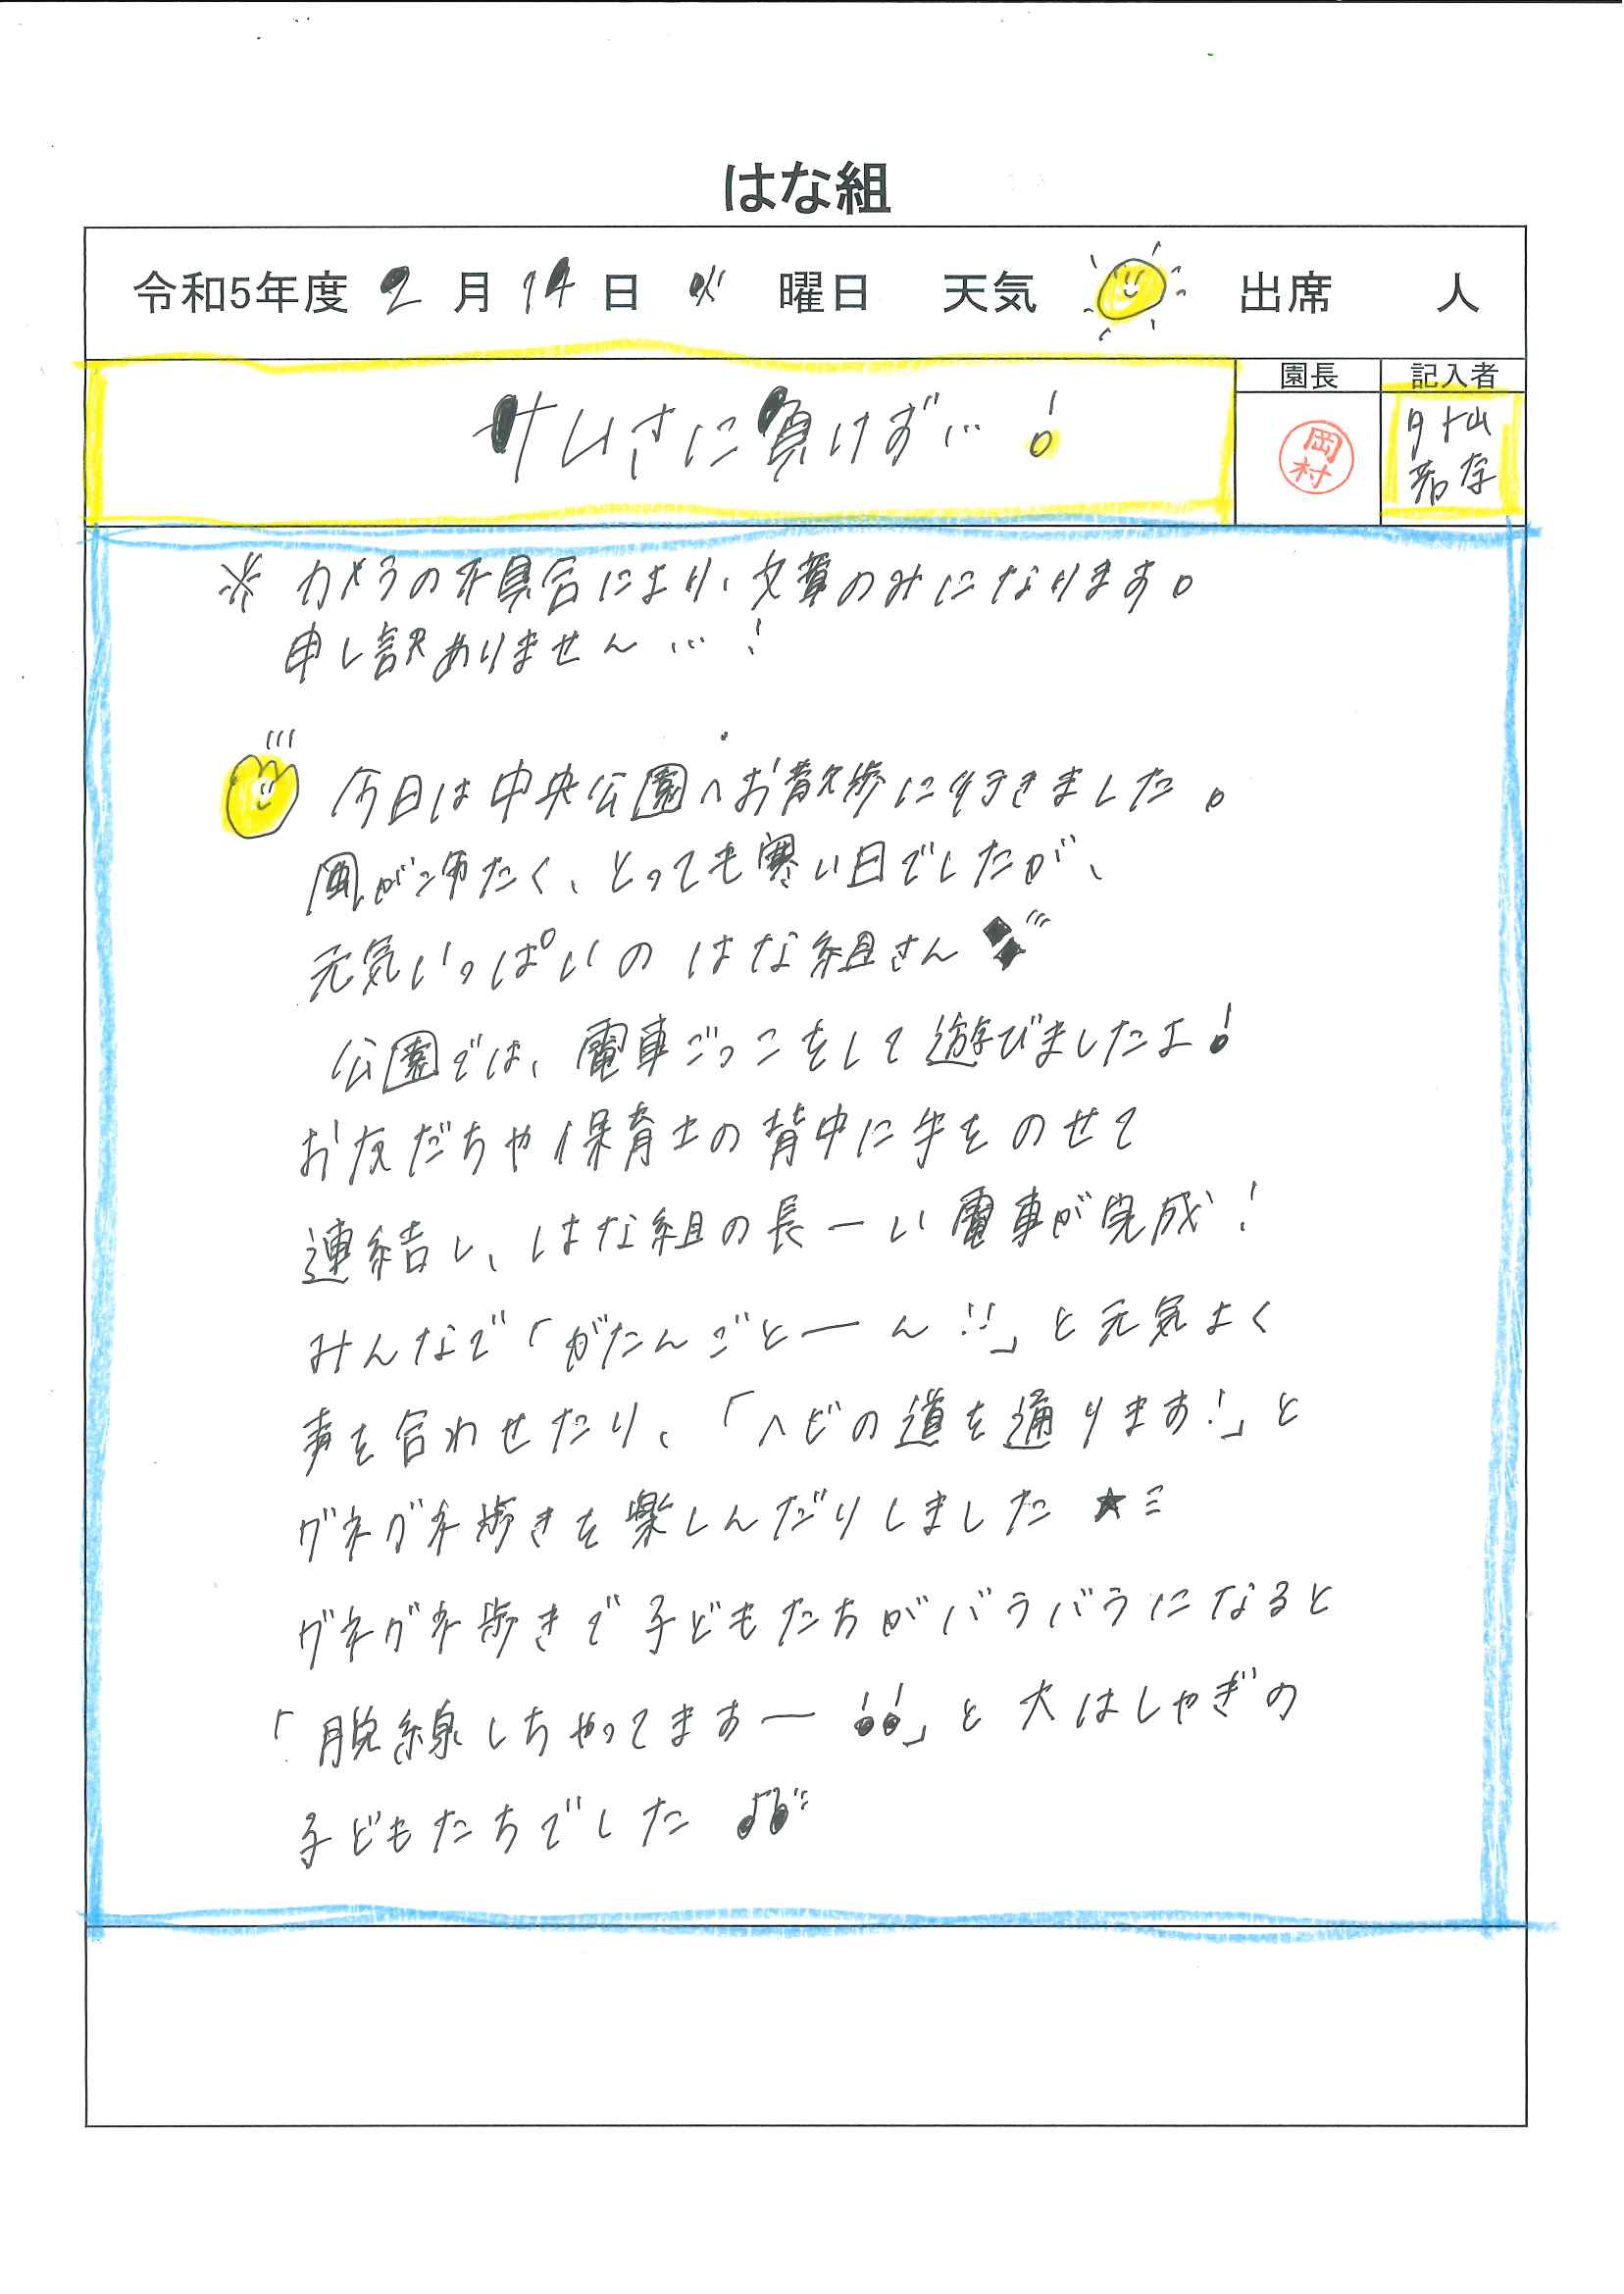 はな組
令和5年度 2 月 14 日 火 曜日 天気 出席 人
園長 記入者
サムさに負けず…!
岡村
※ カメラの不具合により、文章のみになります。
申し訳ありません…!
今日は中央公園へお散歩に行きました。
風が冷たく、とっても寒い日でしたが、
元気いっぱいの はな組さん
公園では、電車ごっこをして遊びましたよ!
お友だちや保育士の背中に手をのせて
連結し、はな組の長ーい電車が完成!
みんなで「がたんごとーん!!」と元気よく
声を合わせたり、「ヘビの道を通ります!」と
グネグネ歩きを楽しんだりしました★
グネグネ歩きで子どもたちがバラバラになると
「脱線しちゃってますー!!」と大はしゃぎの
子どもたちでした♫